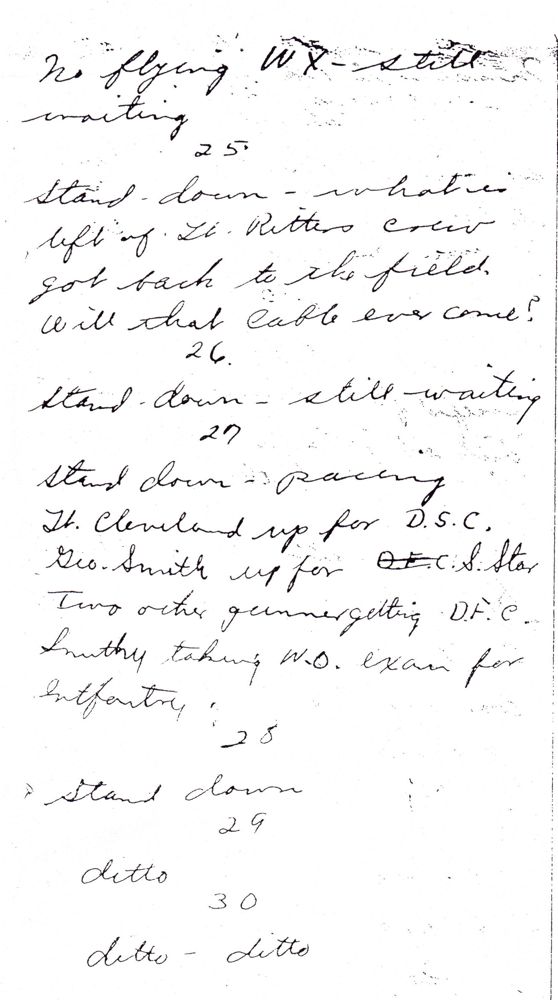 No flying WX - still
waiting
25
Stand-down - what is
left of Lt. Ritters crew
got back to the field.
Will that cable ever come?
26.
Stand-down - still-waiting
27
Stand down - pacing
Lt. Cleveland up for D.S.C.
Geo. Smith up for D.F.C. S. Star
Two other gunner getting D.F.C.
Smithy taking W.O. exam for
28
Stand down
29
ditto
30
ditto - ditto